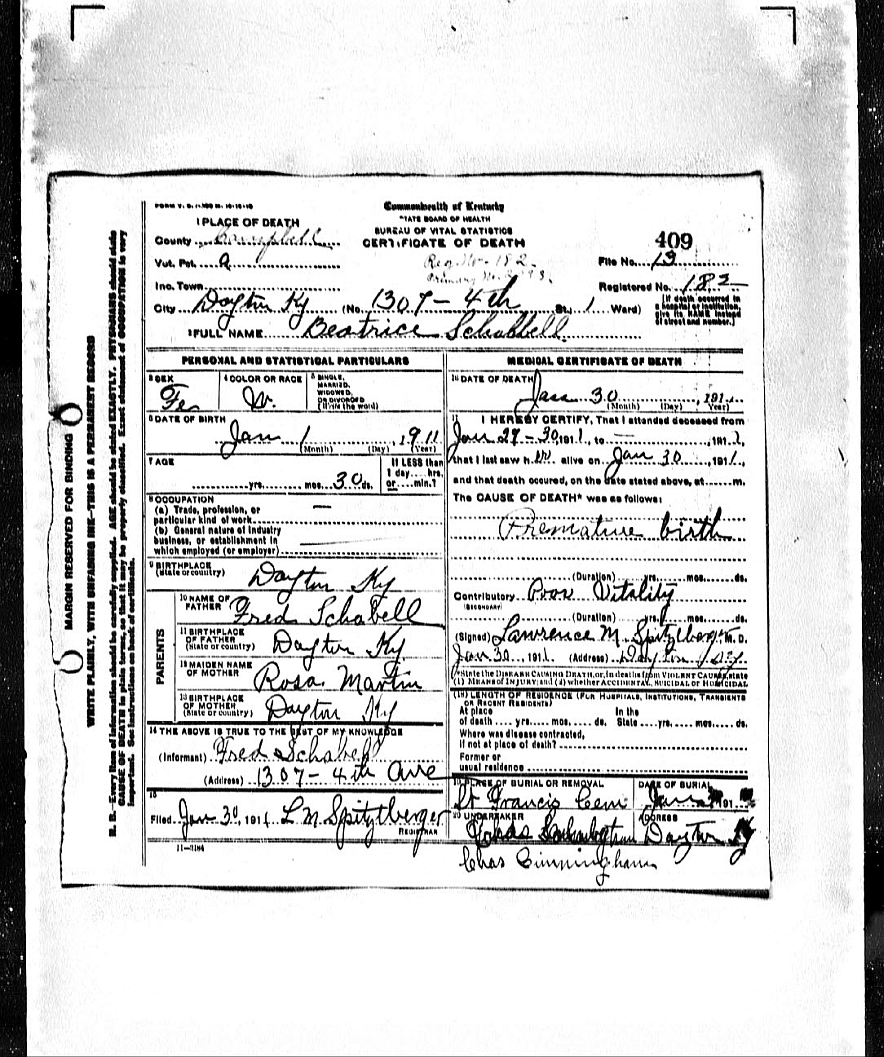 FORM V. S.
Commonwealth of Kentucky
STATE BOARD OF HEALTH
BUREAU OF VITAL STATISTICS
CERTIFICATE OF DEATH
1 PLACE OF DEATH
County Campbell
Vot. Pct. 9
Inc. Town
City Dayton Ky (No. 1307 - 4th St. 1 Ward)
409
File No. 13
Reg No - 182
Registered No. 182
[If death occurred in a hospital or institution, give its NAME instead of street and number.]
2 FULL NAME Beatrice Schabbell
PERSONAL AND STATISTICAL PARTICULARS
3 SEX Fe
4 COLOR OR RACE W.
5 SINGLE, MARRIED, WIDOWED OR DIVORCED (Write the word)
6 DATE OF BIRTH
Jan 1 1911
(Month) (Day) (Year)
7 AGE
yrs. mos. 30 ds.
If LESS than 1 day hrs. or min.?
8 OCCUPATION
(a) Trade, profession, or particular kind of work —
(b) General nature of industry business, or establishment in which employed (or employer)
9 BIRTHPLACE
(State or country) Dayton Ky
PARENTS
10 NAME OF FATHER Fred Schabell
11 BIRTHPLACE OF FATHER (State or country) Dayton Ky
12 MAIDEN NAME OF MOTHER Rosa Martin
13 BIRTHPLACE OF MOTHER (State or country) Dayton Ky
14 THE ABOVE IS TRUE TO THE BEST OF MY KNOWLEDGE
(Informant) Fred Schabell
(Address) 1307 - 4th Ave
15
Filed Jan 30, 1911 L M Spitzlberger
REGISTRAR
11-3184
MEDICAL CERTIFICATE OF DEATH
16 DATE OF DEATH
Jan 30 191
(Month) (Day) (Year)
17 I HEREBY CERTIFY, That I attended deceased from
Jan 27 - 30 1911, to — , 1911,
that I last saw her alive on Jan 30, 1911,
and that death occured, on the date stated above, at m.
The CAUSE OF DEATH* was as follows:
Premature birth
(Duration) yrs. mos. ds.
Contributory Poor Vitality
(SECONDARY)
(Duration) yrs. mos. ds.
(Signed) Lawrence M. Spitzlberger M. D.
Jan 30, 1911 (Address) Dayton Ky
*State the DISEASE CAUSING DEATH, or, in deaths from VIOLENT CAUSES, state
(1) MEANS OF INJURY; and (2) whether ACCIDENTAL, SUICIDAL OR HOMICIDAL
(18) LENGTH OF RESIDENCE (FOR HOSPITALS, INSTITUTIONS, TRANSIENTS
OR RECENT RESIDENTS)
At place of death yrs. mos. ds. In the State yrs. mos. ds.
Where was disease contracted,
if not at place of death?
Former or
usual residence
19 PLACE OF BURIAL OR REMOVAL
St Francis Cem
DATE OF BURIAL
Jan 191
20 UNDERTAKER
ADDRESS
Dayton Ky
Chas Cunningham
MARGIN RESERVED FOR BINDING
WRITE PLAINLY, WITH UNFADING INK—THIS IS A PERMANENT RECORD
N. B.—Every item of information should be carefully supplied. AGE should be stated EXACTLY. PHYSICIANS should state
CAUSE OF DEATH in plain terms, so that it may be properly classified. Exact statement of OCCUPATION is very
important. See instructions on back of certificate.